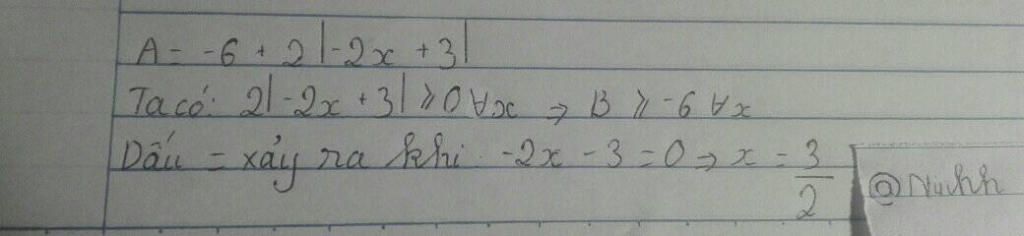 A = -6 + 2 |-2x + 3|
Ta có: 2|-2x + 3| ⩾ 0 ∀x ⇒ B ⩾ -6 ∀x
Dấu = xảy ra khi -2x - 3 = 0 ⇒ x = 3/2